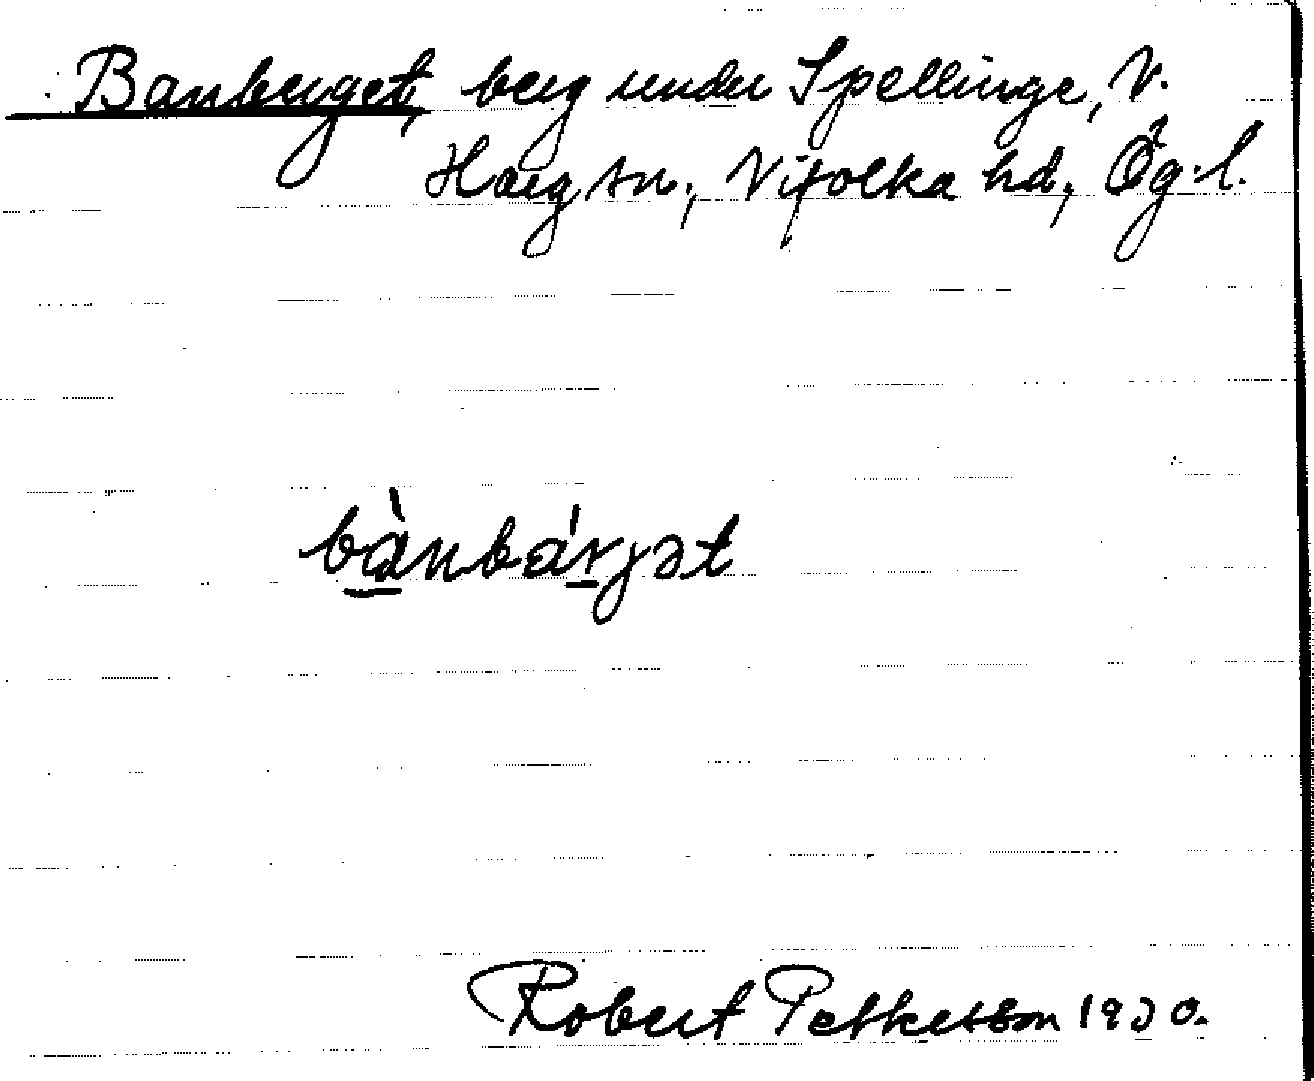 Banberget, berg under Spellinge, V.
Harg sn., Vifolka hd, Ög. l.
bànbárgət
Robert Petterson 1930.